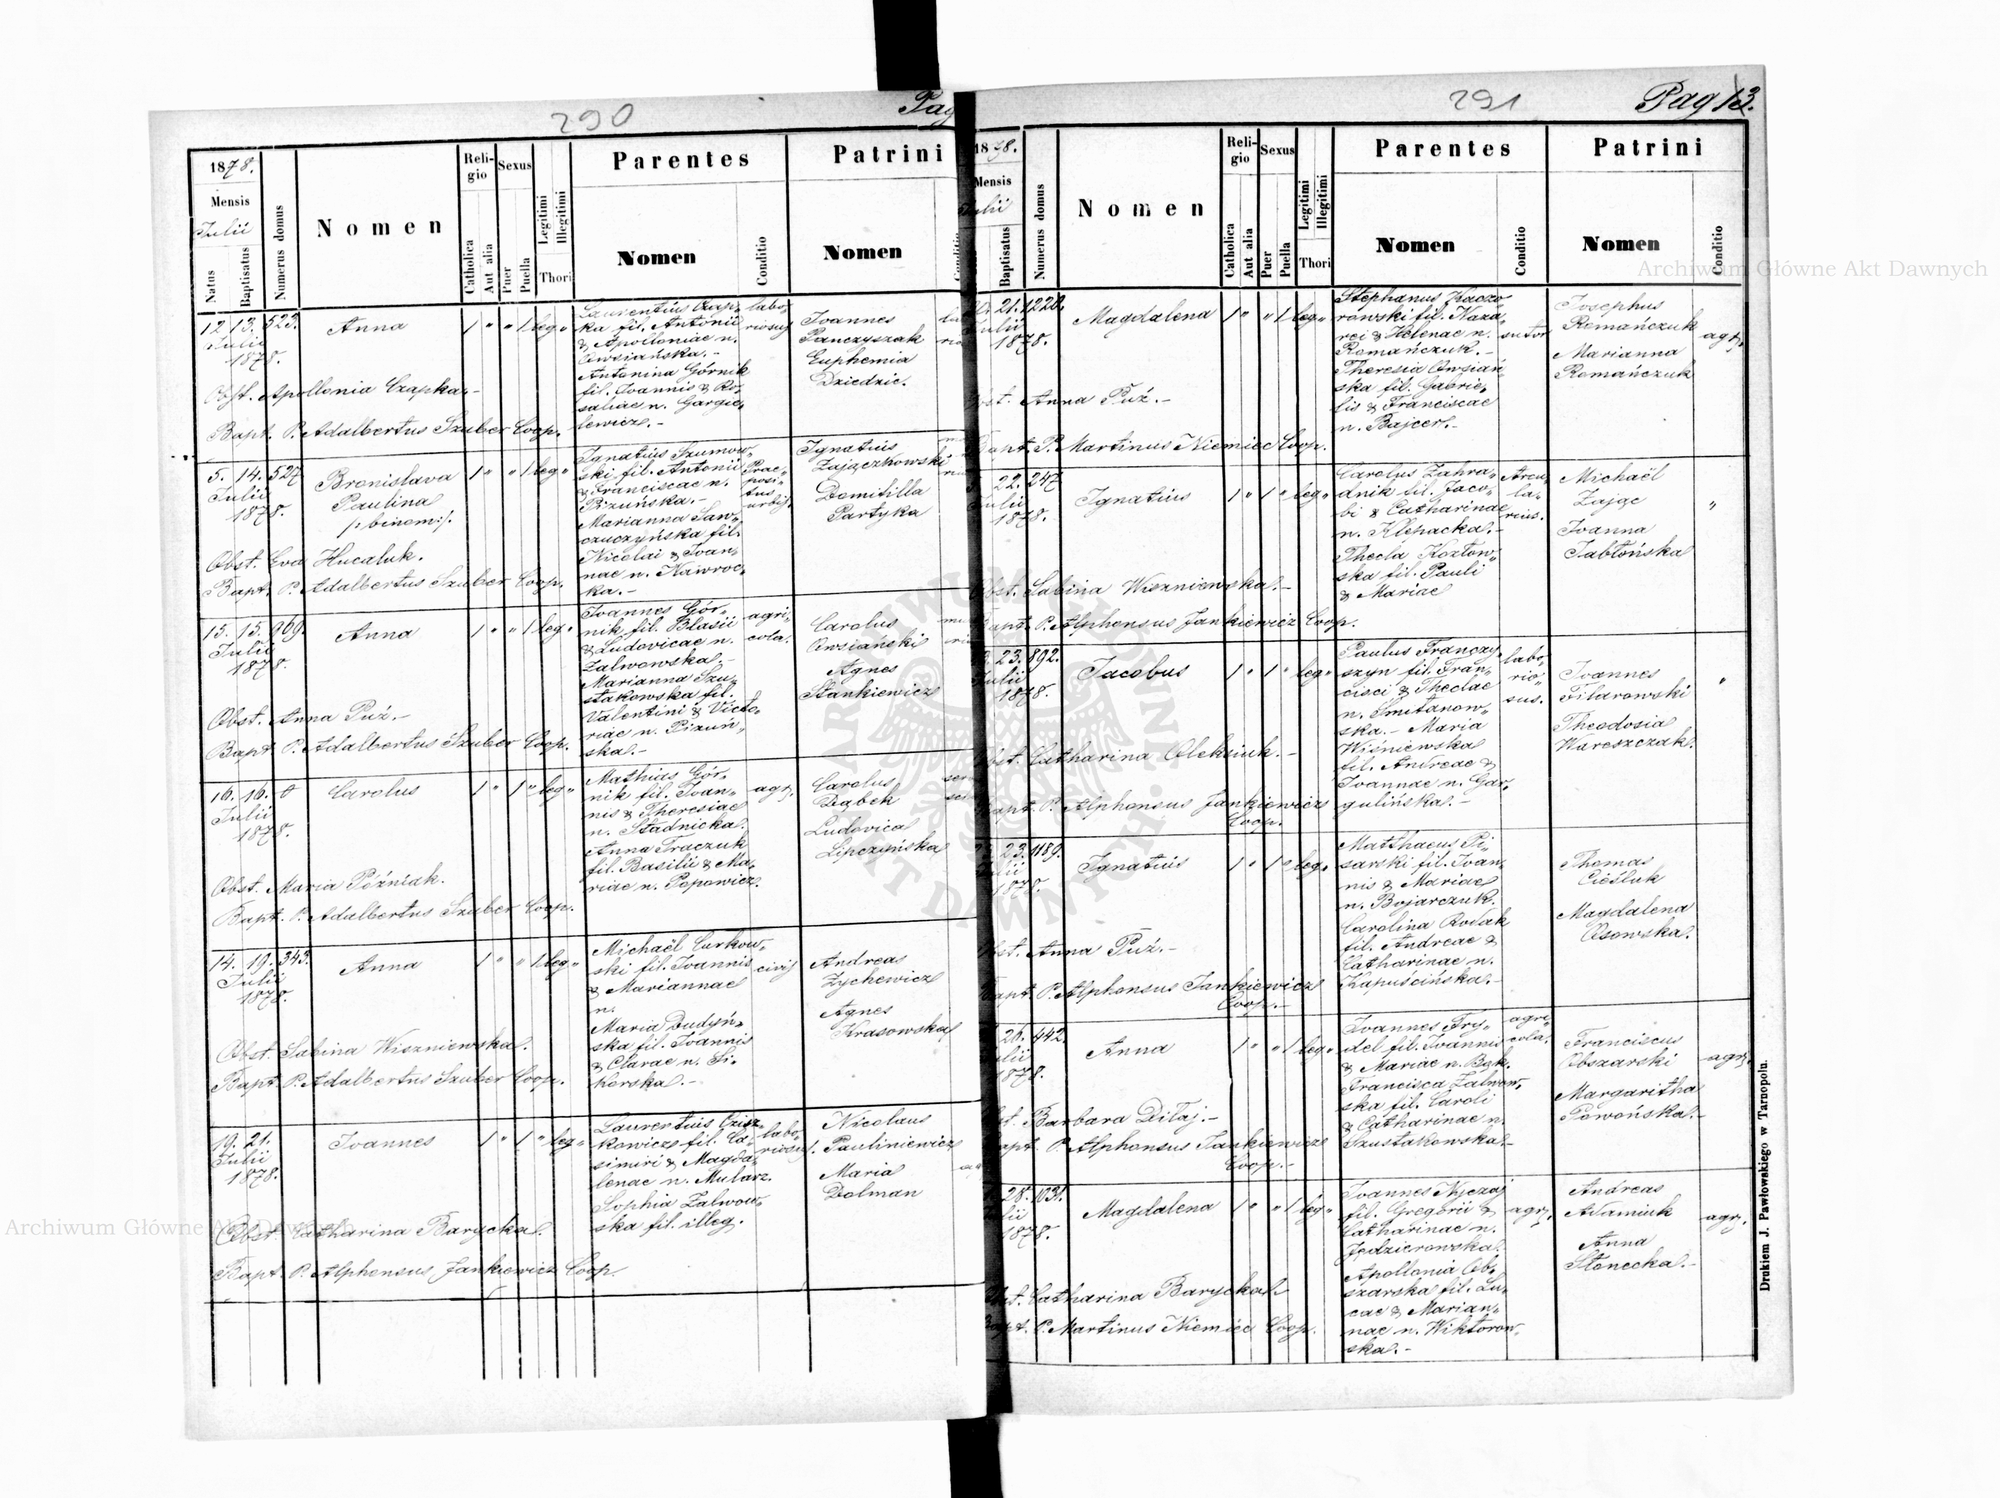 290
Pag
1878.
Mensis
Julii
Natus
Baptisatus
Numerus domus
Nomen
Religio
Catholica
Aut alia
Sexus
Puer
Puella
Legitimi
Illegitimi
Thori
Parentes
Nomen
Conditio
Patrini
Nomen
12. 13. 523.
Julii
1878.
Anna
1 " " 1 leg "
Laurentius Czap-
ka fil. Antonii
& Apolloniae n.
Owsiańska. -
Antonina Górnik
fil. Joannis & Ro-
saliae n. Gargie-
lewicz. -
labo-
riosus
Joannes
Panczyszak
Euphemia
Dziedzic.
Obst. Apollonia Czapka. -
Bapt. P. Adalbertus Szuber Coop.
5. 14. 527
Julii
1878.
Bronislava
Paulina
/: binom :/.
1 " " 1 leg "
Ignatius Szumow-
ski fil. Antonii
& Franciscae n.
Bizuńska. -
Marianna Saw-
czuczyńska fil.
Nicolai & Joan-
nae n. Nawroc-
ka. -
Prae-
posi-
tus
urbis
Ignatius
Zajączkowski
Domitilla
Partyka
Obst. Eva Hucaluk.
Bapt. P. Adalbertus Szuber Coop.
15. 15. 969.
Julii
1878.
Anna
1 " " 1 leg "
Joannes Gór-
nik fil. Blasii
& Ludovicae n.
Zalwowska. -
Marianna Szu-
stakowska fil.
Valentini & Victo-
riae n. Pizuń-
ska. -
agri-
cola.
Carolus
Owsiański
Agnes
Stankiewicz
Obst. Anna Puź. -
Bapt. P. Adalbertus Szuber Coop.
16. 16. 0
Julii
1878.
Carolus
1 " 1 " leg "
Mathias Gór-
nik fil. Joan-
nis & Theresiae
n. Stadnicka.
Anna Traczuk
fil. Basilii & Ma-
riae n. Popowicz.
agr.
Carolus
Dąbek
Ludovica
Lipczyńska
Obst. Maria Póżniak.
Bapt. P. Adalbertus Szuber Coop.
14. 19. 343.
Julii
1878.
Anna
1 " " 1 leg "
Michaël Curkow-
ski fil. Joannis
& Mariannae
n.
Maria Dudyń-
ska fil. Joannis
& Clarae n. Si-
korska. -
civis
Andreas
Zychewicz
Agnes
Krasowska
Obst. Sabina Wiszniewska.
Bapt. P. Adalbertus Szuber Coop.
19. 21.
Julii
1878.
Joannes
1 " 1 " leg "
Laurentius Czisz-
kowicz fil. Ca-
simiri & Magda-
lenae n. Mularz.
Sophia Zalwow-
ska fil. illeg.
labo-
riosus.
Nicolaus
Pauliniewicz
Maria
Dolman
Obst. Catharina Barycka.
Bapt. P. Alphonsus Jankiewicz Coop.
291
Pag 13.
1878.
Mensis
Julii
Baptisatus
Numerus domus
Nomen
Religio
Catholica
Aut alia
Sexus
Puer
Puella
Legitimi
Illegitimi
Thori
Parentes
Nomen
Conditio
Patrini
Nomen
Conditio
21. 1220.
Julii
1878.
Magdalena
1 " " 1 leg "
Stephanus Kaczo-
rowski fil. Naza-
rei & Helenae n.
Romańczuk. -
Theresia Owsiań-
ska fil. Gabrie-
lis & Franciscae
n. Bajcer. -
sutor
Josephus
Romańczuk
Marianna
Romańczuk
agr.
Obst. Anna Puź. -
Bapt. P. Martinus Niemiec Coop.
22. 247
Julii
1878.
Ignatius
1 " 1 " leg "
Carolus Zahra-
dnik fil. Jaco-
bi & Catharinae
n. Klepacka. -
Thecla Kozłow-
ska fil. Pauli
& Mariae
Arcu-
la-
rius.
Michaël
Zając
Joanna
Jabłońska
"
Obst. Sabina Wiszniewska. -
Bapt. P. Alphonsus Jankiewicz Coop.
23. 892.
Julii
1878.
Jacobus
1 " 1 " leg "
Paulus Franczy-
szyn fil. Fran-
cisci & Theclae
n. Smitanow-
ska. - Maria
Wiśniewska
fil. Andreae &
Joannae n. Gar-
gulińska. -
labo-
rio-
sus.
Joannes
Filarowski
Theodosia
Wareszczak.
"
Obst. Catharina Oleksiuk. -
Bapt. P. Alphonsus Jankiewicz
Coop.
23. 1189.
Julii
1878.
Ignatius
1 " 1 " leg "
Matthaeus Pi-
sarski fil. Joan-
nis & Mariae
n. Bojarczuk.
Carolina Rodak
fil. Andreae &
Catharinae n.
Kapuścińska. -
Thomas
Cieśluk
Magdalena
Osowska.
Obst. Anna Puź. -
Bapt. P. Alphonsus Jankiewicz
Coop. -
26. 442.
Julii
1878.
Anna
1 " " 1 leg "
Joannes Fry-
del fil. Joannis
& Mariae n. Bąk.
Francisca Zalwow-
ska fil. Caroli
& Catharinae n.
Szustakowska. -
agri-
cola.
Franciscus
Obszarski
Margaritha
Powońska. -
agr.
Obst. Barbara Diłaj. -
Bapt. P. Alphonsus Jankiewicz
Coop. -
28. 1031.
Julii
1878.
Magdalena
1 " " 1 leg "
Joannes Nyczaj
fil. Gregorii &
Catharinae n.
Jędzierowska.
Apollonia Ob-
szarska fil. Lu-
cae & Marian-
nae n. Wiktorow-
ska. -
agr.
Andreas
Adamiuk
Anna
Słonecka. -
agr.
Obst. Catharina Barycka.
Bapt. P. Martinus Niemiec Coop.
Drukiem J. Pawłowskiego w Tarnopolu.
Archiwum Główne Akt Dawnych
Archiwum Główne Akt Dawnych
ARCHIWUM GŁÓWNE AKT DAWNYCH